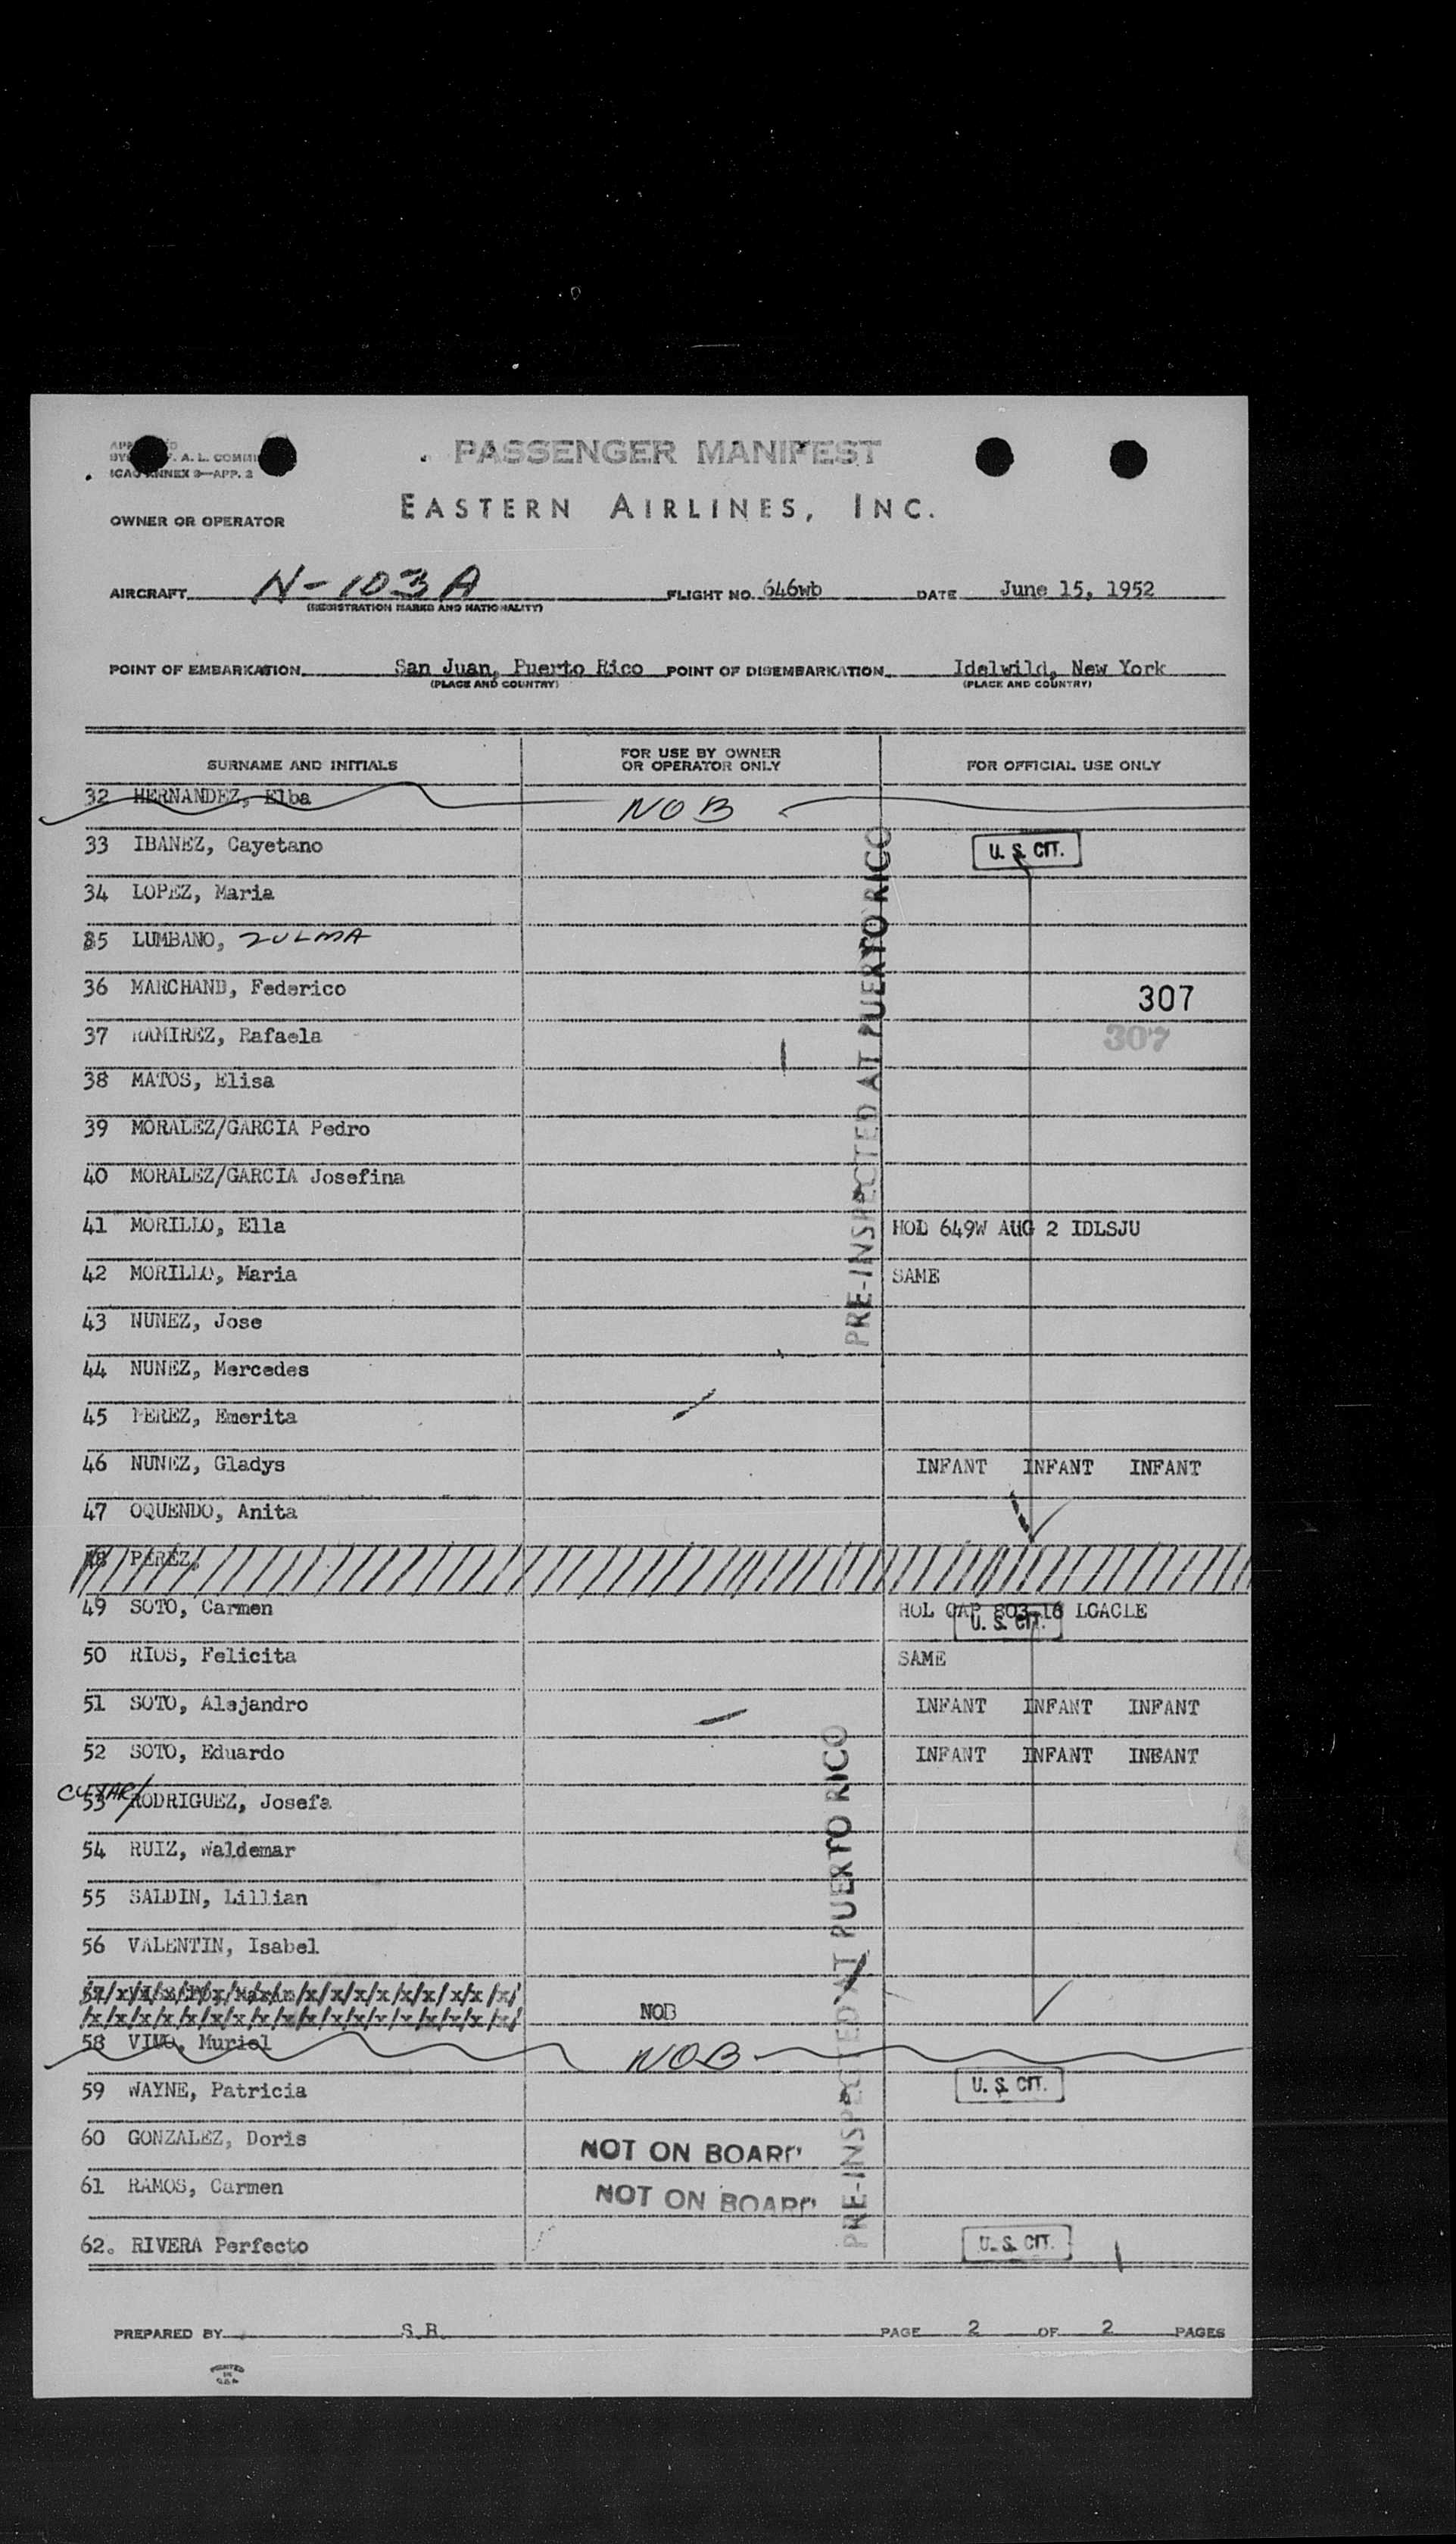 PASSENGER MANIFEST
A. L. COMMI
ICAO ANNEX 9—APP. 2
EASTERN AIRLINES, INC.
OWNER OR OPERATOR
AIRCRAFT N-103A FLIGHT NO. 646wb DATE June 15, 1952
(REGISTRATION MARKS AND NATIONALITY)
POINT OF EMBARKATION San Juan, Puerto Rico POINT OF DISEMBARKATION Idelwild, New York
(PLACE AND COUNTRY) (PLACE AND COUNTRY)
SURNAME AND INITIALS FOR USE BY OWNER OR OPERATOR ONLY FOR OFFICIAL USE ONLY
32 HERNANDEZ, Elba NOB
33 IBANEZ, Cayetano U. S. CIT.
34 LOPEZ, Maria
35 LUMBANO, ZULMA
36 MARCHAND, Federico 307
37 RAMIREZ, Rafaela 307
38 MATOS, Elisa
39 MORALEZ/GARCIA Pedro
40 MORALEZ/GARCIA Josefina
41 MORILLO, Ella HOD 649W AUG 2 IDLSJU
42 MORILLO, Maria SAME
PRE-INSPECTED AT PUERTO RICO
43 NUNEZ, Jose
44 NUNEZ, Mercedes
45 PEREZ, Emerita
46 NUNEZ, Gladys INFANT INFANT INFANT
47 OQUENDO, Anita
48 PEREZ,
49 SOTO, Carmen HOL CAP 803 16 LGACLE
U. S. CIT.
50 RIOS, Felicita SAME
51 SOTO, Alejandro INFANT INFANT INFANT
52 SOTO, Eduardo INFANT INFANT INBANT
53 RODRIGUEZ, Josefa
54 RUIZ, Waldemar
55 SALDIN, Lillian
56 VALENTIN, Isabel
57
/x/x/x/x/x/x/x/x/x/x/x/x/x/x/x/x/x/ NOB
58 VIVO, Muriel NOB
59 WAYNE, Patricia U. S. CIT.
60 GONZALEZ, Doris NOT ON BOARD
61 RAMOS, Carmen NOT ON BOARD
62. RIVERA Perfecto U. S. CIT.
PRE-INSPECTED AT PUERTO RICO
PREPARED BY S.R. PAGE 2 OF 2 PAGES
PRINTED
IN
U.S.A.